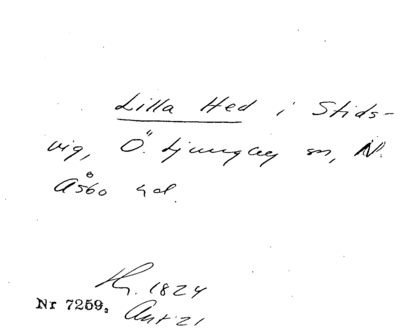 Lilla Hed i Stids-
vig, Ö. Ljungby sn, N.
Åsbo hd.
1824
Nr 7259.